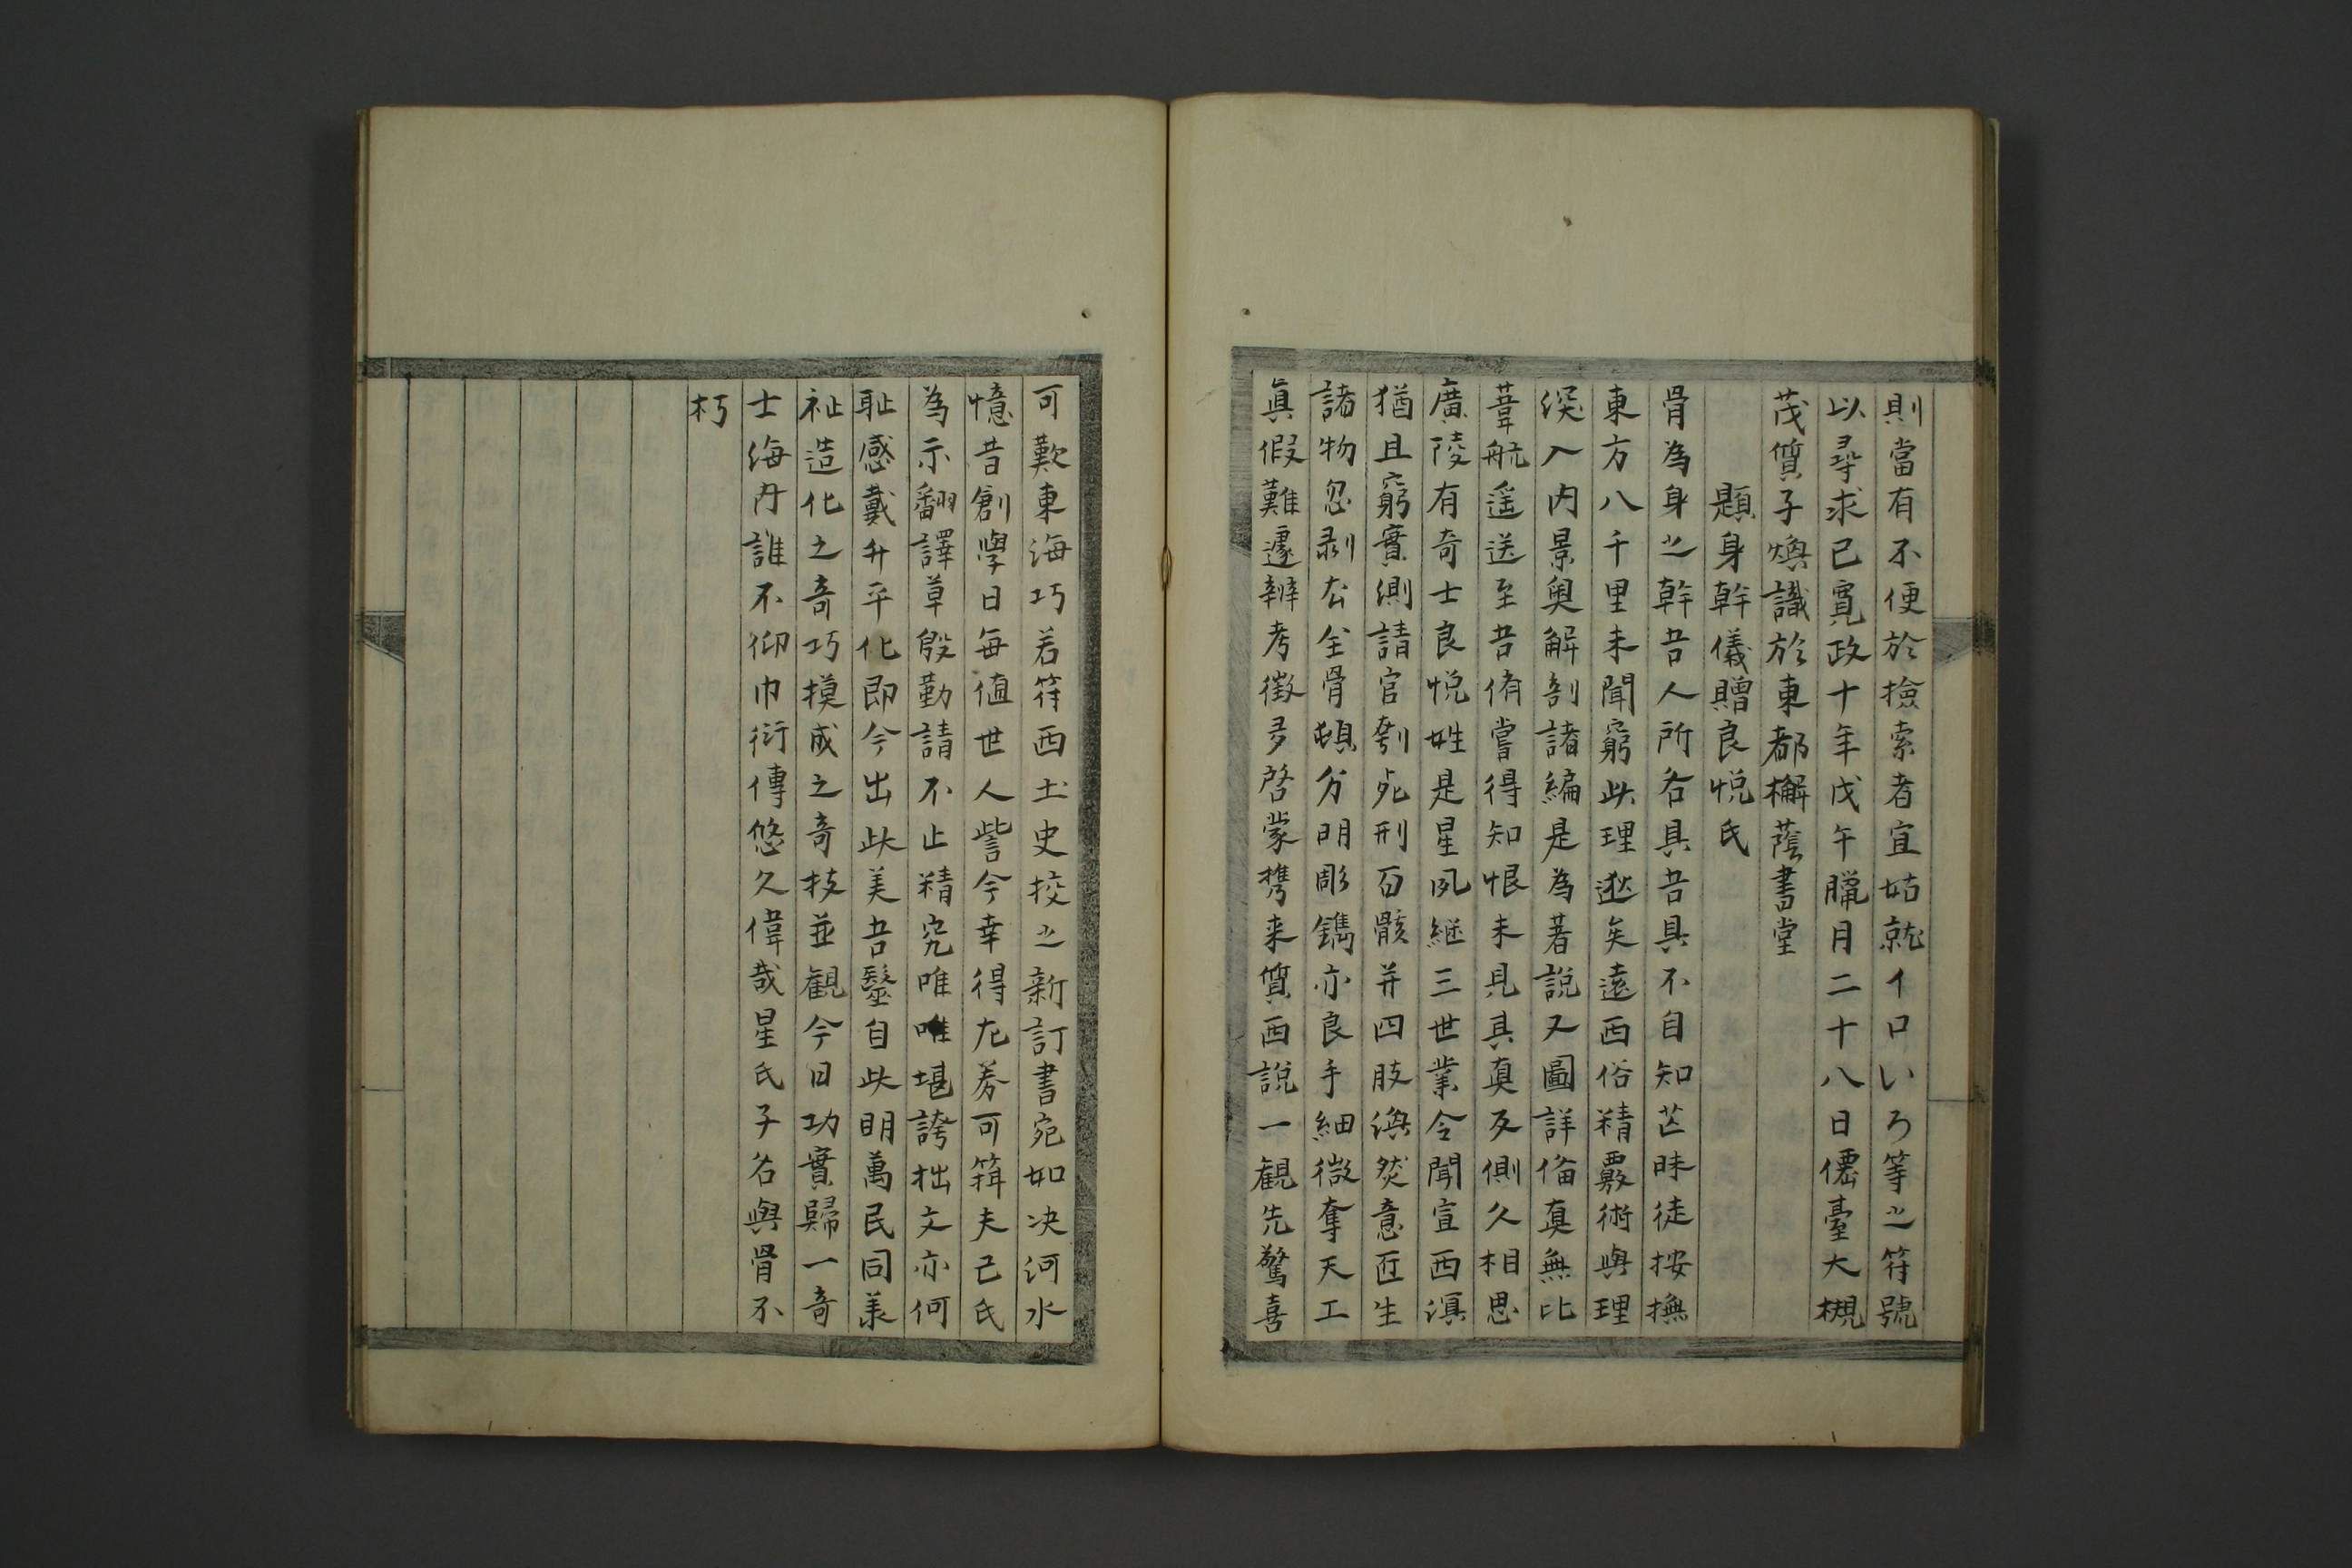 則當有不便於撿索者宜姑就イロいろ等之符號
以尋求已寛政十年戊午臘月二十八日僊臺大槻
茂質子煥識於東都櫞蔭書堂
題身幹儀贈良悅氏
骨為身之幹吾人所各具吾具不自知芒昧徒按撫
東方八千里未聞窮此理逖矣遠西俗精覈術與理
深入内景奥解剖諸編是為著說又圖詳俻真無比
葦航遥送至吾儕嘗得知恨未見其真反側久相思
廣陵有奇士良悅姓是星夙継三世業令聞宣西濵
猶且窮實測請官刳死刑百骸并四肢渙然意匠生
諸物忽剥去全骨頓分明彫鐫亦良手細微奪天工
眞假難遽辨考徵多啓蒙携来質西說一観先驚喜
可歎東海巧若符西土史挍之新訂書宛如决河水
憶昔創學日毎値世人訾今幸得左券可箝夫己氏
為示翻譯草慇勤請不止精究唯唯堪誇拙文亦何
耻感戴升平化即今出此美吾鬉自此明萬民同羕
祉造化之奇巧摸成之奇技並観今日功實歸一奇
士海内誰不仰巾衍傳悠久偉哉星氏子名與骨不
朽